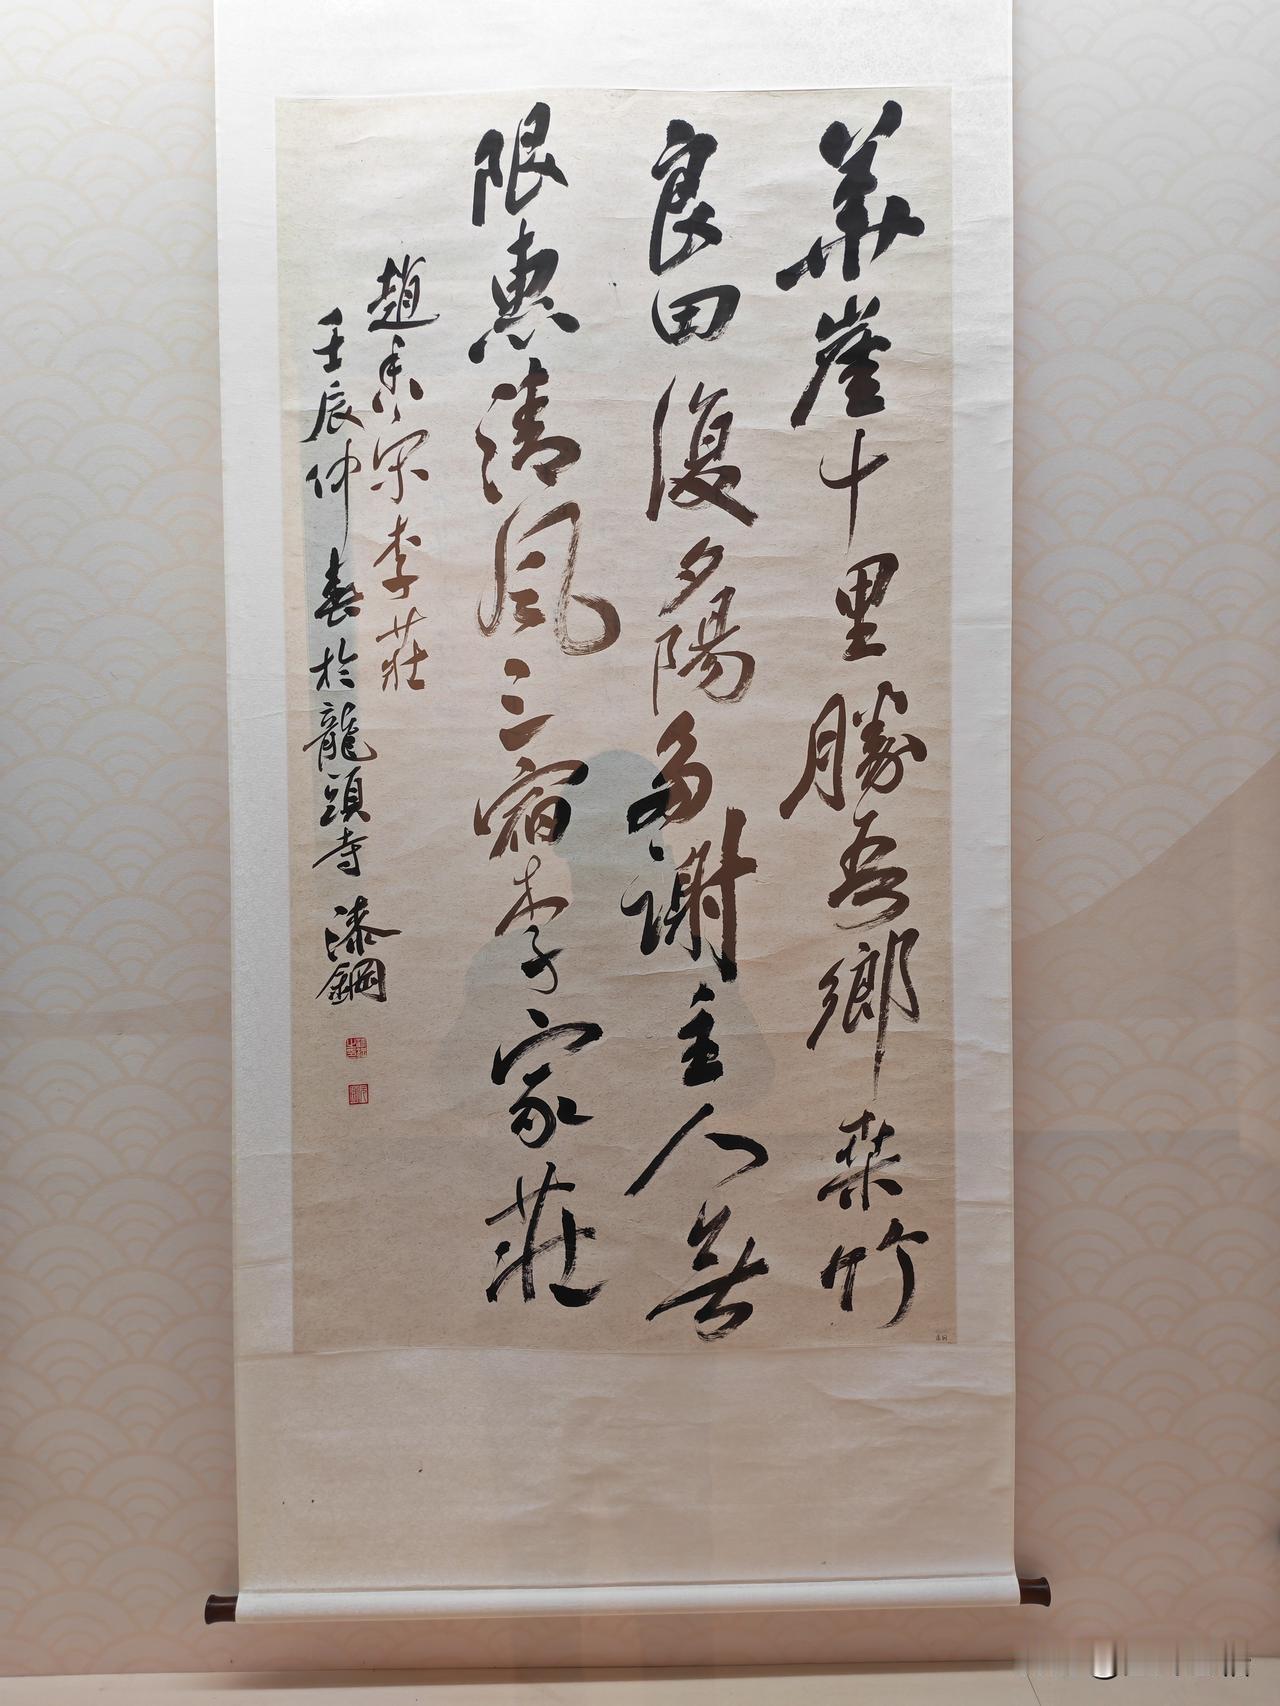 華崖十里勝吾鄉桑竹
良田復夕陽多謝主人無
限惠清風三宿李家莊
趙香宋李莊
壬辰仲春於龍頭寺 漆鋼